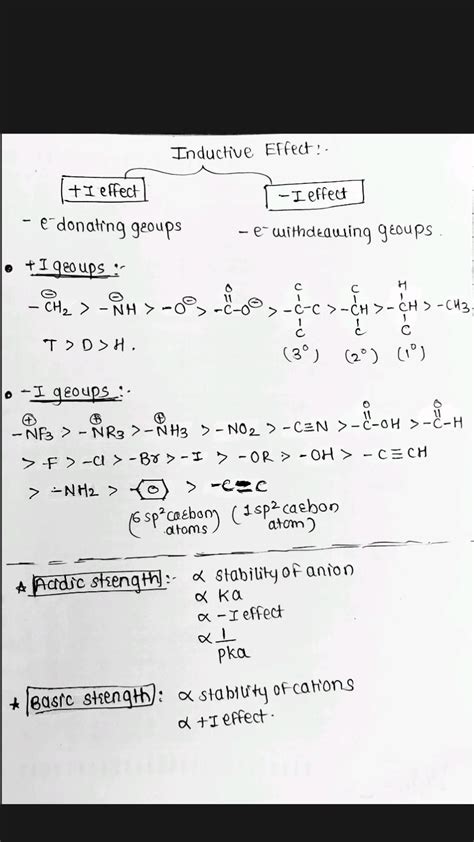 Inductive Effect :-
+I effect
-I effect
- e⁻ donating groups
- e⁻ withdrawing groups.
• +I groups :-
-CH₂⊖ > -NH⊖ > -O⊖ > -C(=O)-O⊖ > -C(C)(C)-C > -CH(C)(C) > -CH(H)(C) > -CH3
T > D > H.
(3°) (2°) (1°)
• -I groups :-
-NF3⊕ > -NR3⊕ > -NH3⊕ > -NO2 > -C≡N > -C(=O)-OH > -C(=O)-H
> -F > -Cl > -Br > -I > -OR > -OH > -C≡CH
> -NH2 > > -C=C
(6 sp² carbon atoms) (1 sp² carbon atom)
* Acidic strength :- α stability of anion
α Ka
α -I effect
α 1/pka
* Basic strength : α stability of cations
α +I effect.